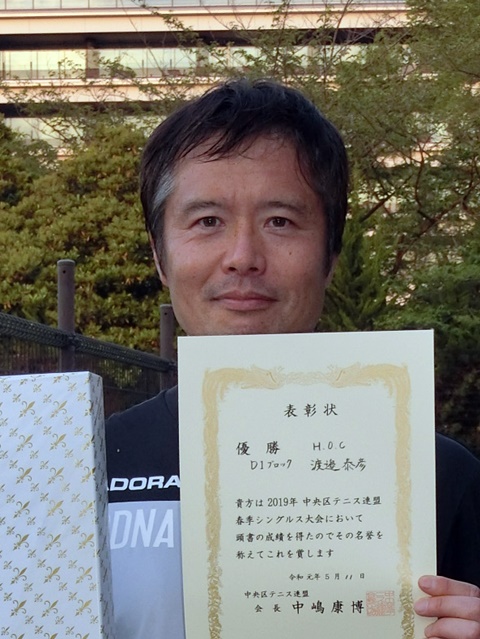 表彰状
優勝 H.O.C
D1ブロック 渡邉泰彦
貴方は2019年 中央区テニス連盟
春季シングルス大会において
頭書の成績を得たのでその名誉を
称えてこれを賞します
令和元年5月11日
中央区テニス連盟
会長 中嶋康博
ADORA
DNA